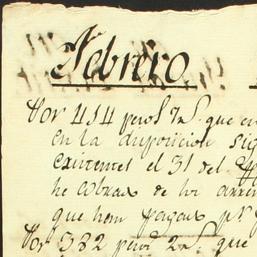 Febrero
Por 414 pesos 7 r.s que en
en la disposicion sig
existentes el 31 del
he cobrado de los
que han pagado p.r
Por 382 pesos 2 r.s que